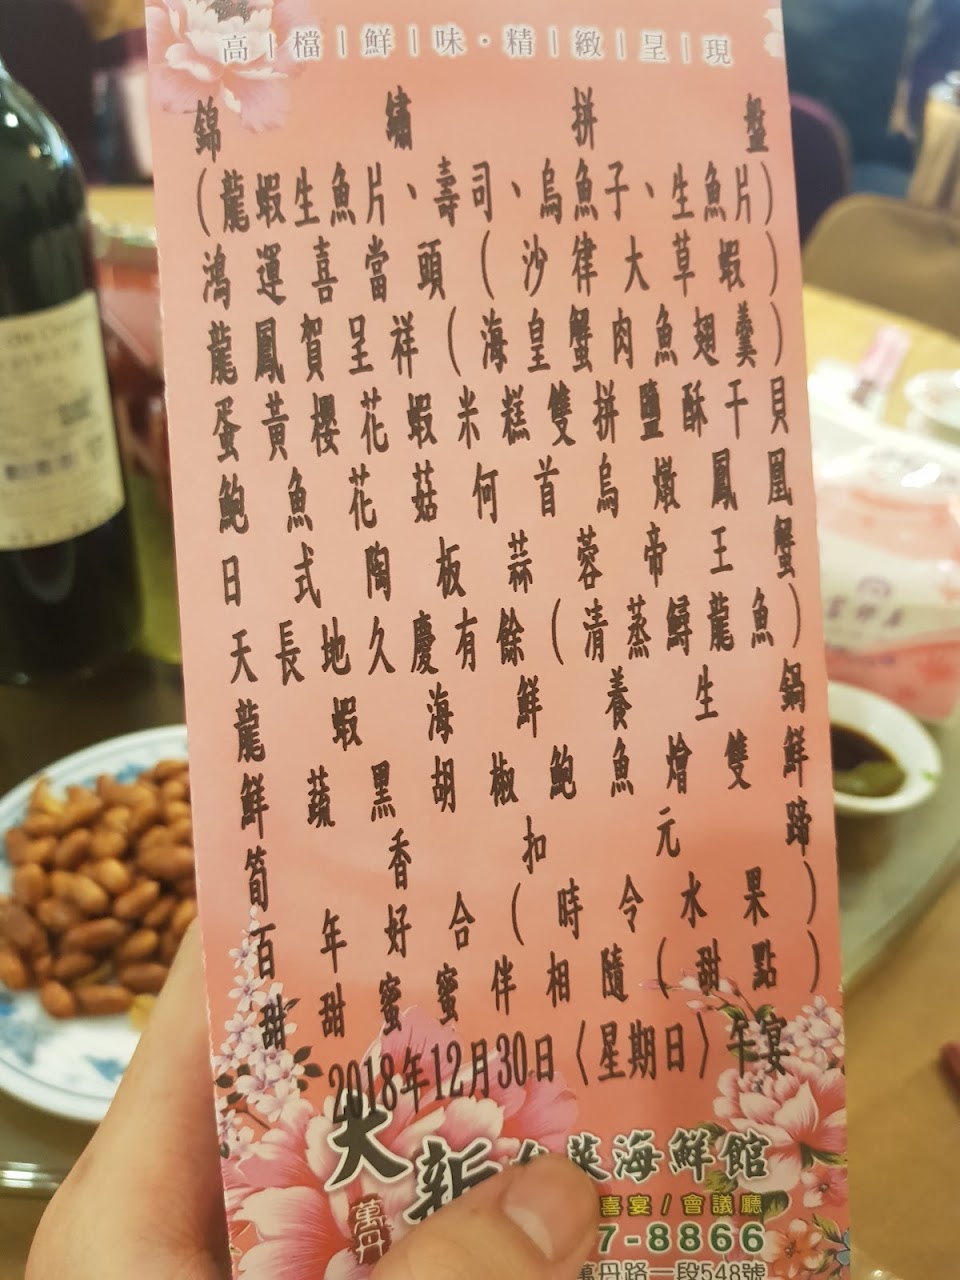 高|檔|鮮|味·精|緻|呈|現
錦繡拼盤
(龍蝦生魚片、壽司、烏魚子、生魚片)
鴻運喜當頭(沙律大草蝦)
龍鳳賀呈祥(海皇蟹肉魚翅羹)
蛋黃櫻花蝦米糕雙拼鹽酥干貝
鮑魚花菇何首烏燉鳳凰
日式陶板蒜蓉帝王蟹
天長地久慶有餘(清蒸鱘龍魚)
龍蝦海鮮養生鍋
鮮蔬黑胡椒鮑魚燴雙鮮
筍香扣元蹄
百年好合(時令水果)
甜甜蜜蜜伴相隨(甜點)
2018年12月30日〈星期日〉午宴
大新 菜海鮮館
萬丹
喜宴/會議廳
7-8866
萬丹路一段548號